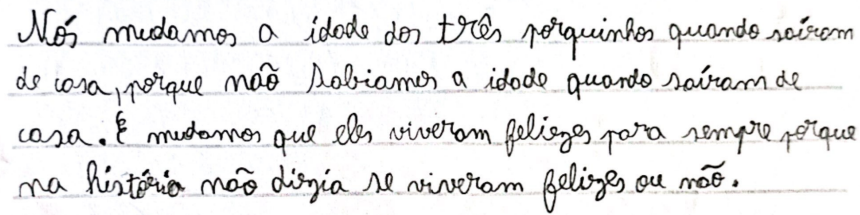 Nós mudamos a idade dos três porquinhos quando saíram
de casa, porque não sabiamos a idade quando saíram de
casa. E mudamos que eles viveram feliezes para sempre porque
na história não dizia se viveram felizes ou não.